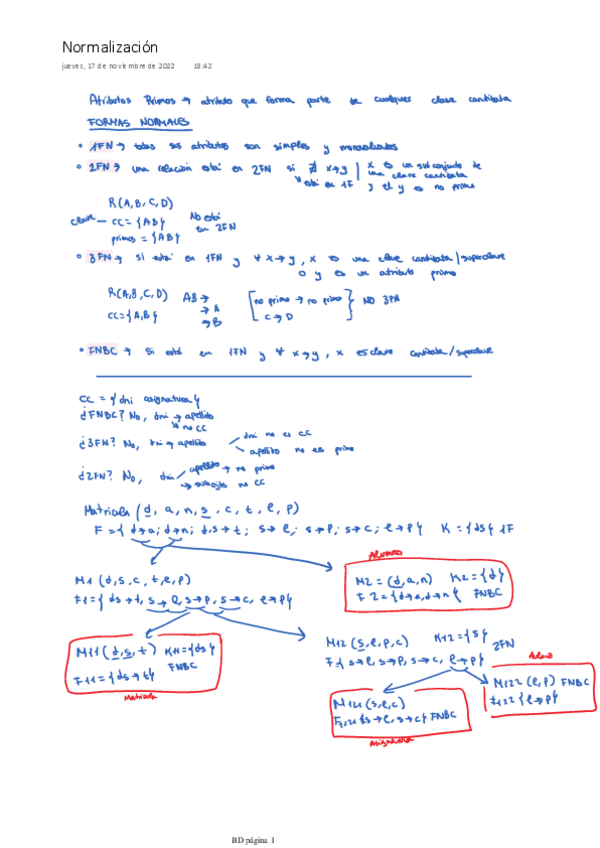 Normalización
jueves, 17 de noviembre de 2022 18:42
Atributos Primos → atributo que forma parte de cualquier clave candidata
FORMAS NORMALES
• 1FN → todos sus atributos son simples y monovaluados
• 2FN → una relación está en 2FN si ∄ x→y | x es un subconjunto de
una clave candidata
está en 1F y el y es no primo
R(A,B,C,D)
clave — CC = {AB} No está
en 2FN
primos = {AB}
• 3FN → si está en 1FN y ∀ x→y, x es una clave candidata/superclave
o y es un atributo primo
R(A,B,C,D) AB →
→ A
→ B
CC = {A,B}
[no primo → no primo
C → D] NO 3FN
• FNBC → Si está en 1FN y ∀ x→y, x es clave candidata/superclave
CC = {dni asignatura}
¿FNBC? No, dni → apellido
no CC
¿3FN? No, dni → apellido
dni no es CC
apellido no es primo
¿2FN? No, dni
apellido → no primo
→ subcjto no CC
Matricula (d, a, n, s, c, t, e, p)
F = { d→a; d→n; d,s→t; s→e; s→p; s→c; e→p} K = {ds} 1F
Alumno
M1 (d,s,c,t,e,p)
F1 = { ds→t, s→e, s→p, s→c, e→p}
M2 = (d,a,n) K2 = {d}
F2 = {d→a, d→n} FNBC
M11 (d,s,t) K11 = {ds}
FNBC
F11 = {ds→t}
Matricula
M12 (s,e,p,c) K12 = {s} 2FN
F{ s→e, s→p, s→c, e→p}
M122 (e,p) FNBC
F122 {e→p}
M121 (s,e,c)
F121 {s→e, s→c} FNBC
Asignatura
BD página 1